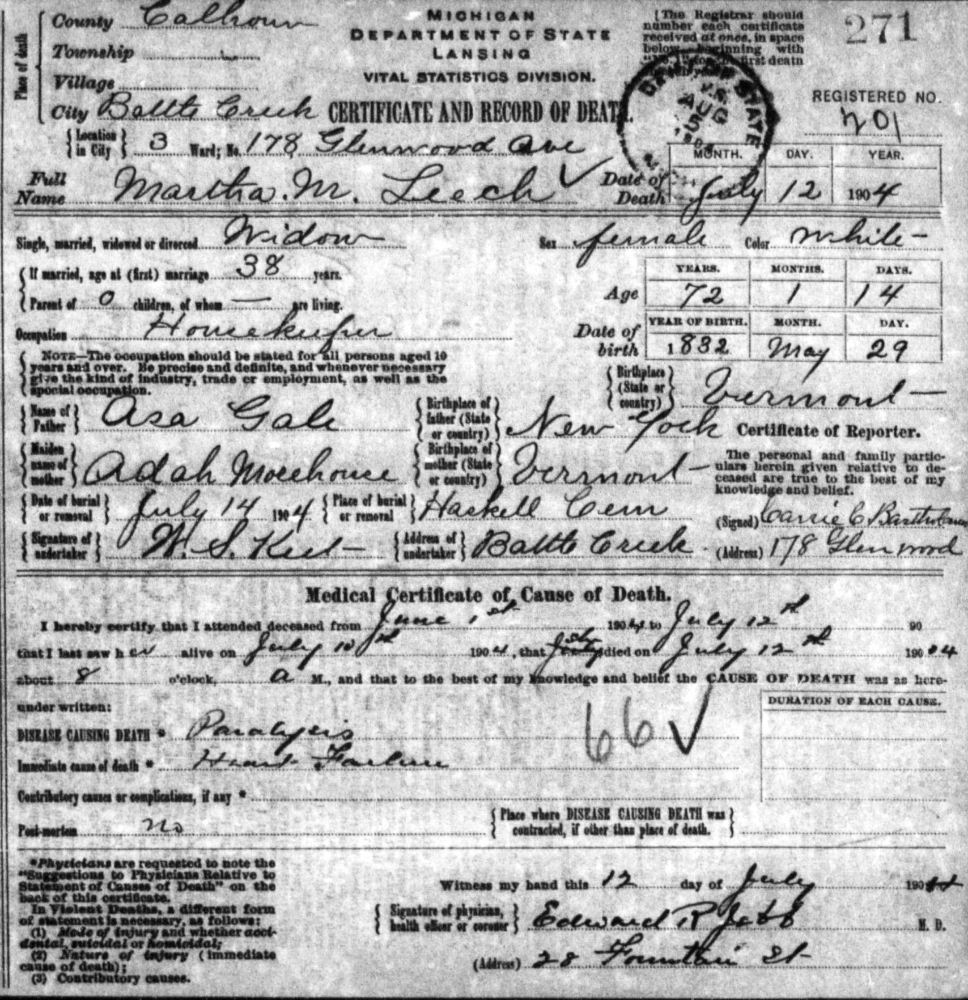 Place of death
County Calhoun
Township
Village
City Battle Creek
Location in City 3 Ward; No. 178 Glenwood Ave
MICHIGAN
DEPARTMENT OF STATE
LANSING
VITAL STATISTICS DIVISION.
CERTIFICATE AND RECORD OF DEATH.
[The Registrar should
number each certificate
received at once, in space
below, beginning with
first death
271
STATE
AUG
REGISTERED NO.
201
Full Name Martha M. Leech ✓
Date of Death
MONTH. DAY. YEAR.
July 12 1904
Single, married, widowed or divorced Widow
Sex female Color white
If married, age at (first) marriage 38 years.
Parent of 0 children, of whom — are living.
Occupation Housekeeper
Age
YEARS. MONTHS. DAYS.
72 1 14
Date of birth
YEAR OF BIRTH. MONTH. DAY.
1832 May 29
NOTE—The occupation should be stated for all persons aged 10
years and over. Be precise and definite, and whenever necessary
give the kind of industry, trade or employment, as well as the
special occupation.
Birthplace (State or country) Vermont
Name of Father Asa Gale
Birthplace of father (State or country) New York
Maiden name of mother Adah Morehouse
Birthplace of mother (State or country) Vermont
Certificate of Reporter.
The personal and family partic-
ulars herein given relative to de-
ceased are true to the best of my
knowledge and belief.
Date of burial or removal July 14 1904
Place of burial or removal Haskell Cem
(Signed) Carrie C
Signature of undertaker W. S.
Address of undertaker Battle Creek
(Address) 178 Glenwood
Medical Certificate of Cause of Death.
I hereby certify that I attended deceased from June 1st 1904 to July 12th 90
that I last saw her alive on July 10th 1904, that died on July 12th 1904
about 8 o'clock, a M., and that to the best of my knowledge and belief the CAUSE OF DEATH was as here-
under written:
DURATION OF EACH CAUSE.
DISEASE CAUSING DEATH * Paralysis
66 ✓
Immediate cause of death * Heart Failure
Contributory causes or complications, if any *
Post-mortem no
Place where DISEASE CAUSING DEATH was
contracted, if other than place of death.
*Physicians are requested to note the
"Suggestions to Physicians Relative to
Statement of Causes of Death" on the
back of this certificate.
In Violent Deaths, a different form
of statement is necessary, as follows:
(1) Mode of injury and whether acci-
dental, suicidal or homicidal;
(2) Nature of injury (immediate
cause of death);
(3) Contributory causes.
Witness my hand this 12 day of July 1904
Signature of physician, health officer or coroner Edward R Jebb M. D.
(Address) 28 Fountain St